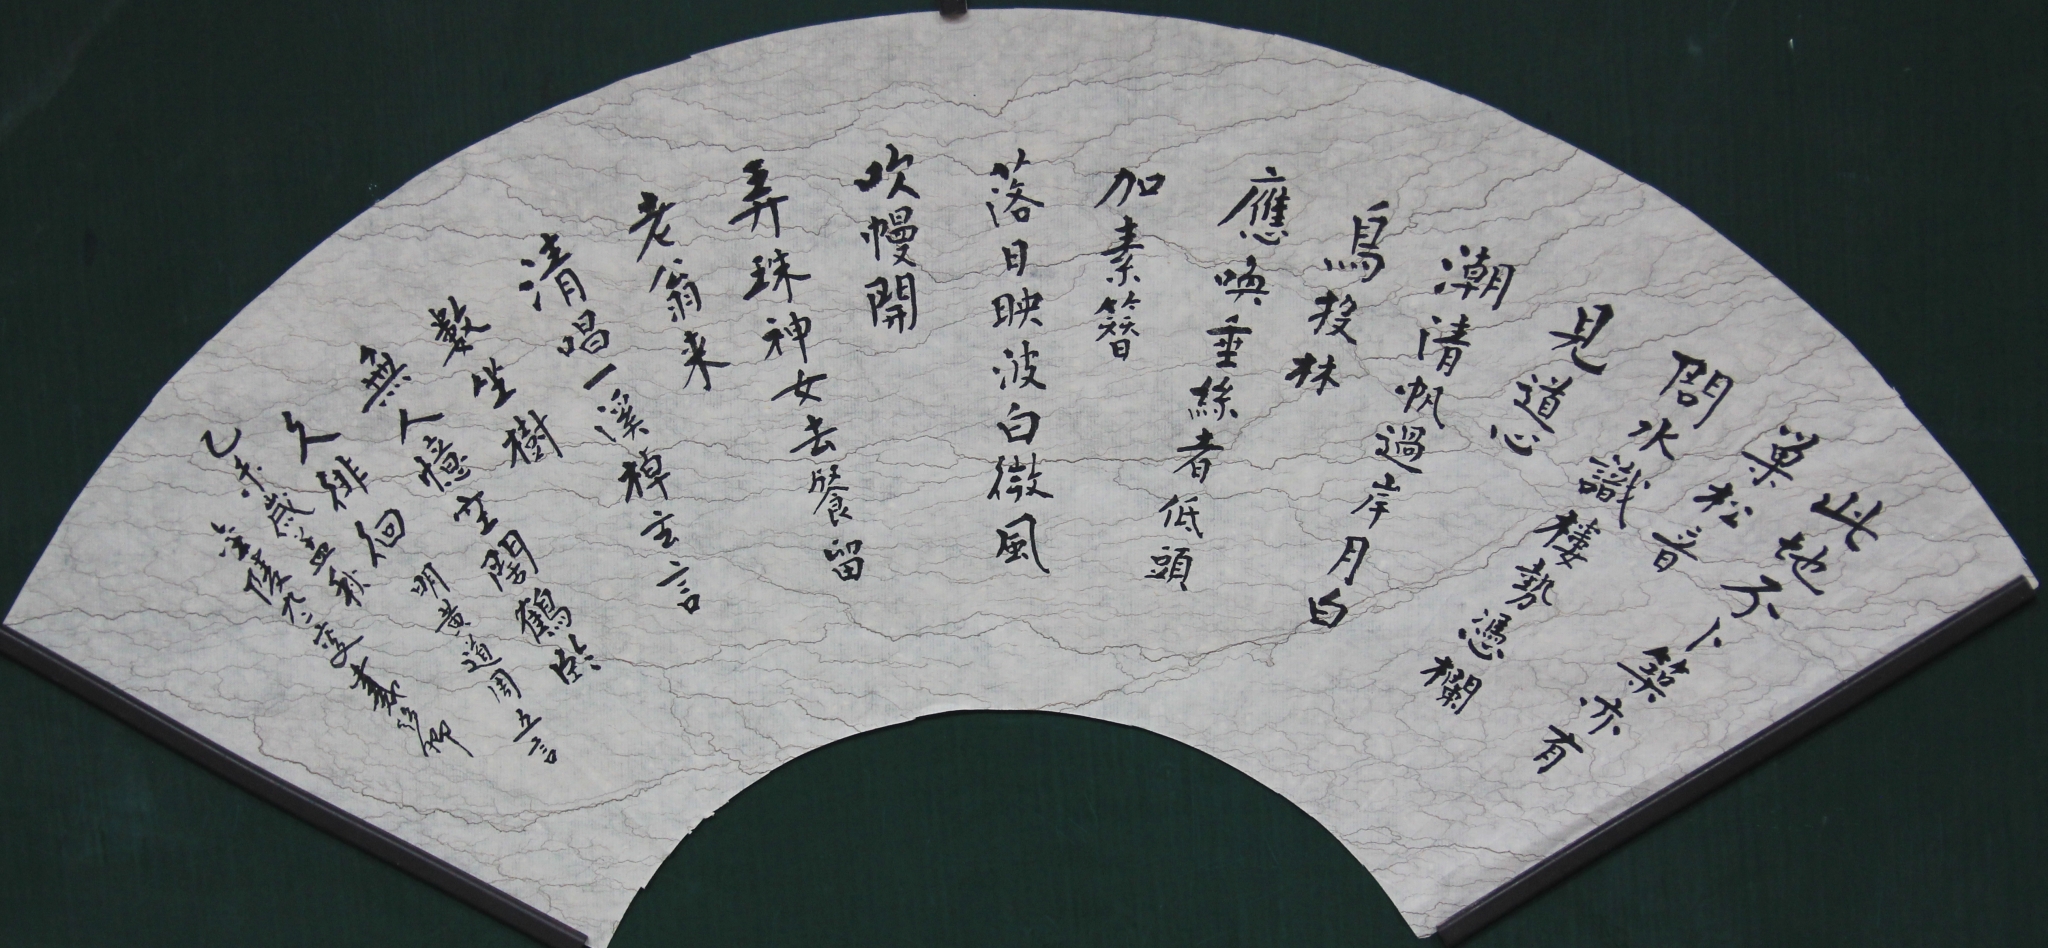 此地不卜築亦有
巢松音
問水識棲勢憑欄
見道心
潮清帆過岸月白
鳥投林
應喚垂絲者低頭
加素簪
落日映波白微風
吹幔開
弄珠神女去餐留
老翁来
清唱一溪棹玄言
數坐樹
無人憶空闊鶴
久徘徊 明黃道周五言
乙未歲孟秋
金陵